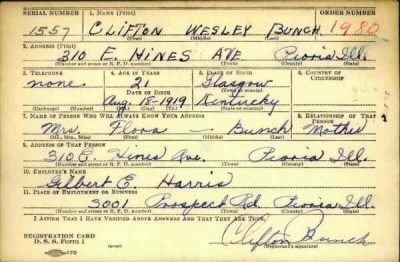 SERIAL NUMBER 1. NAME (Print) ORDER NUMBER
1557 CLIFTON WESLEY BUNCH 1980
(First) (Middle) (Last)
2. ADDRESS (Print)
310 E. HINES AVE Peoria Ill.
(Number and street or R. F. D. number) (Town) (County) (State)
3. TELEPHONE 4. AGE IN YEARS 5. PLACE OF BIRTH 6. COUNTRY OF CITIZENSHIP
none 21 Glasgow
DATE OF BIRTH (Town or county)
Aug. 18-1919 Kentucky
(Exchange) (Number) (Mo.) (Day) (Yr.) (State or country)
7. NAME OF PERSON WHO WILL ALWAYS KNOW YOUR ADDRESS 8. RELATIONSHIP OF THAT PERSON
Mrs. Flora - Bunch Mother
(Mr., Mrs., Miss) (First) (Middle) (Last)
9. ADDRESS OF THAT PERSON
310 E. Hines Ave. Peoria Ill.
(Number and street or R. F. D. number) (Town) (County) (State)
10. EMPLOYER'S NAME
Gilbert E. Harris
11. PLACE OF EMPLOYMENT OR BUSINESS
3001 Prospect Rd Peoria Ill.
(Number and street or R. F. D. number) (Town) (County) (State)
I AFFIRM THAT I HAVE VERIFIED ABOVE ANSWERS AND THAT THEY ARE TRUE.
REGISTRATION CARD
D. S. S. Form 1 Clifton Bunch
(Registrant's signature)